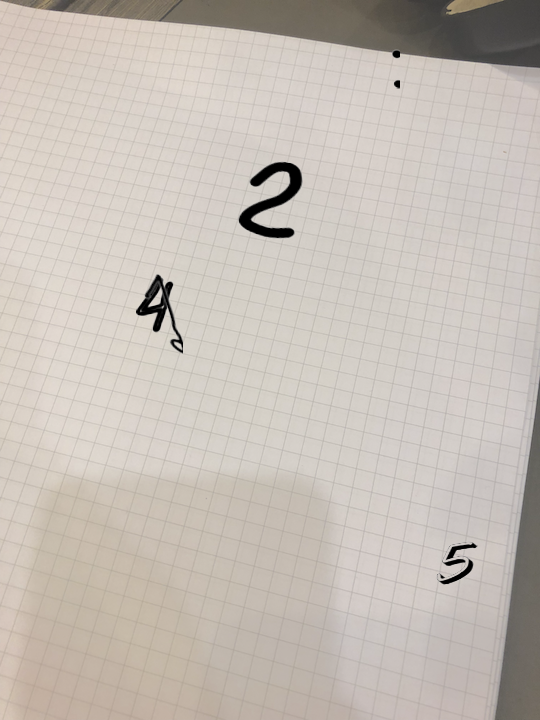 :
2
4
5